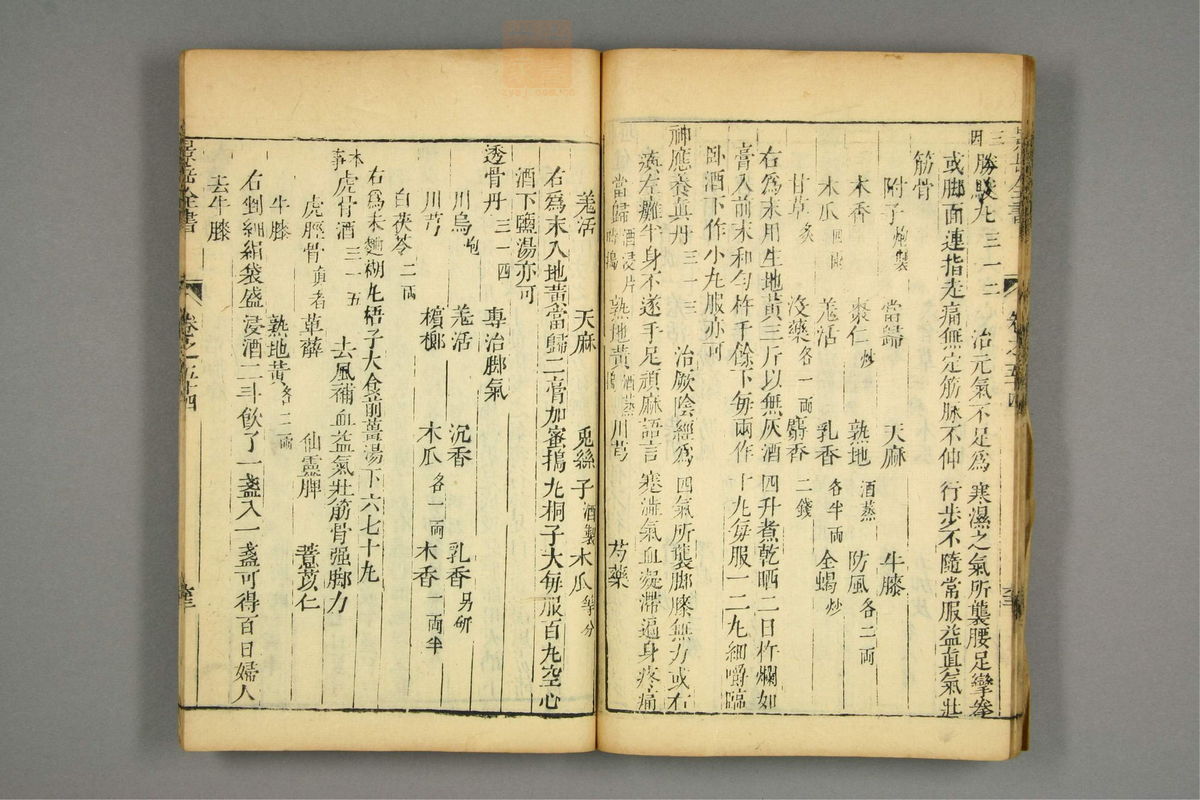 三因勝駿丸三一二　治元氣不足爲寒濕之氣所襲腰足攣拳
或脚面連指走痛無定筋脉不伸行步不隨常服益眞氣壯
筋骨
附子炮製　當歸　天麻　牛膝
木香　棗仁炒　熟地酒蒸　防風各二兩
木瓜四兩　羗活　乳香各半兩　全蝎炒
甘草炙　沒藥各一兩　麝香二錢
右爲末用生地黃三斤以無灰酒四升煮乾晒二日杵爛如
膏入前末和勻杵千餘下每兩作十丸每服一二丸細嚼臨
卧酒下作小丸服亦可
神應養真丹三一三　治厥陰經爲四氣所襲脚膝無力或右
癱左瘫半身不遂手足頑麻語言蹇澁氣血凝滯遍身疼痛
當歸酒浸片時搗　熟地黃酒蒸搗　川芎　芍藥
羗活　天麻　兎絲子酒製　木瓜等分
右爲末入地黃當歸二膏加蜜搗丸桐子大每服百丸空心
酒下鹽湯亦可
透骨丹三一四　專治脚氣
川烏炮　羗活　沉香　乳香另研
川芎　檳榔　木瓜各一兩　木香一兩半
白茯苓二兩
右爲末麵糊丸梧子大食前薑湯下六七十丸
本事虎骨酒三一五　去風補血益氣壯筋骨强脚力
虎脛骨真者　萆薢　仙靈脾　薏苡仁
牛膝　熟地黃各二兩
右剉細絹袋盛浸酒二斗飲了一盞入一盞可得百日婦人
去牛膝
景岳全書
卷之五十四